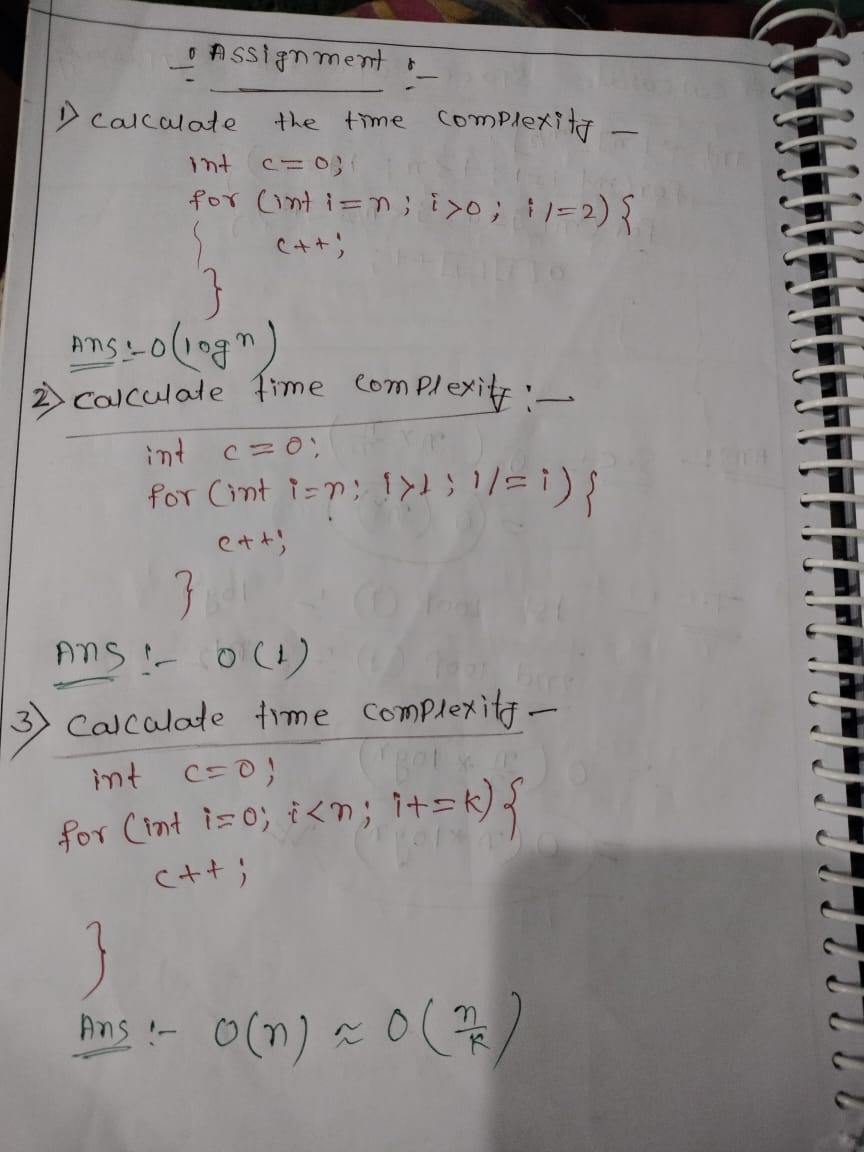 : Assignment :-
1) calculate the time complexity -
int c=0;
for (int i=n; i>0; i/=2) {
{ c++;
}
Ans :- O(log n)
2) calculate time complexity :-
int c=0;
for (int i=n; i>1; i/=i) {
c++;
}
Ans :- O(1)
3) calculate time complexity -
int c=0;
for (int i=0; i<n; i+=k) {
c++;
}
Ans :- O(n) ≈ O(n/k)